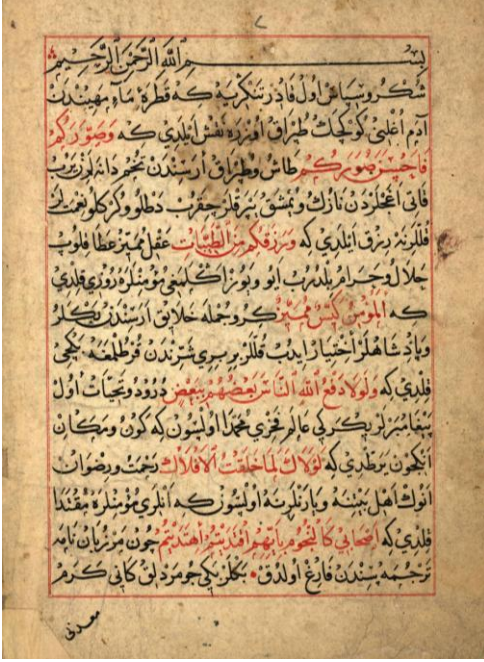 ٧
بِسْمِ اللّٰهِ الرَّحْمٰنِ الرَّحِيمِ
شُكْر وسِپَاسْ اول قَادِرْ تَنكْرِيَه كِه قَطْرَهٔ مَآءِ مَهِينْدَنْ
آدَمْ اُغْلَنِى كُوكْچَكْ طُپْرَاقْ اُوزَرَه نَقْش اَيْلَدِى كِه وَصَوَّرَكُمْ
فَاَحْسَنَ صُوَرَكُمْ طَاش وطُپْرَاقْ اَرَسِنْدَنْ تُخْم دَانَه لَرْ
قَاتِى اَغَجْلَرْدَنْ نَازُكْ ويُمْشَقْ يَمِشْلَرْ چِقَرُبْ دَطْلُو وكَركْلُو نِعْمَتْلَرْ
قُلْلَرِنَه رِزْق اَيْلَدِى كِه وَرَزَقَكُمْ مِنَ الطَّيِّبَاتِ عَقْلِ مُمَيِّزْ عَطَا قِلُوبْ
حَلَال وحَرَامْ بِلْدُرُبْ اَيُو ويَوُوزْ اَكْلَمَغِى مُؤْمِنْلَرَه رُوزِى قِلْدِى
كِه اَلْمُؤْمِنُ كَيِّسٌ مُمَيِّزٌ كِرُو جُمْلَه خَلَايِقْ اَرَسِنْدَنْ بَكْلَرْ
وپَادْشَاهْلَرْ اِخْتِيَارْ اِيدُبْ قُلْلَرْ بِرْ بِرِى شَرِّنْدَنْ قُرْطُلْمَغَه يَكِجِى
قِلْدِى كِه وَلَوْلَا دَفْعُ اللّٰهِ النَّاسَ بَعْضَهُمْ بِبَعْضٍ دُرُود و تَحِيَّاتْ اُولْ
پَيْغَامْبَرْلَرْ يِكْرَكِى عَالَمْ فَخْرِى مُحَمَّدَا اُولْسُونْ كِه كَوْن ومَكَانْ
اَنِكْچُونْ يَرَتْدِى كِه لَوْلَاكَ لَمَا خَلَقْتُ الْاَفْلَاكَ رَحْمَت ورِضْوَانْ
اَنُوكْ اَهْلِ بَيْتِنَه ويَارَنْلَرِنَه اُولْسُونْ كِه اَنْلَرِى مُؤْمِنْلَرَه مُقْتَدَا
قِلْدِى كِه اَصْحَابِى كَالنُّجُومِ بِاَيِّهِمْ اقْتَدَيْتُمْ اهْتَدَيْتُمْ چُونْ مَرْزُبَانْ نَامَه
تَرْجَمَه سِنْدَنْ فَارِغْ اُولْدُقْ • بَكْلَرْ يِكِى جُومَرْدْلِقْ كَانِى كَرَمْ
معدنى